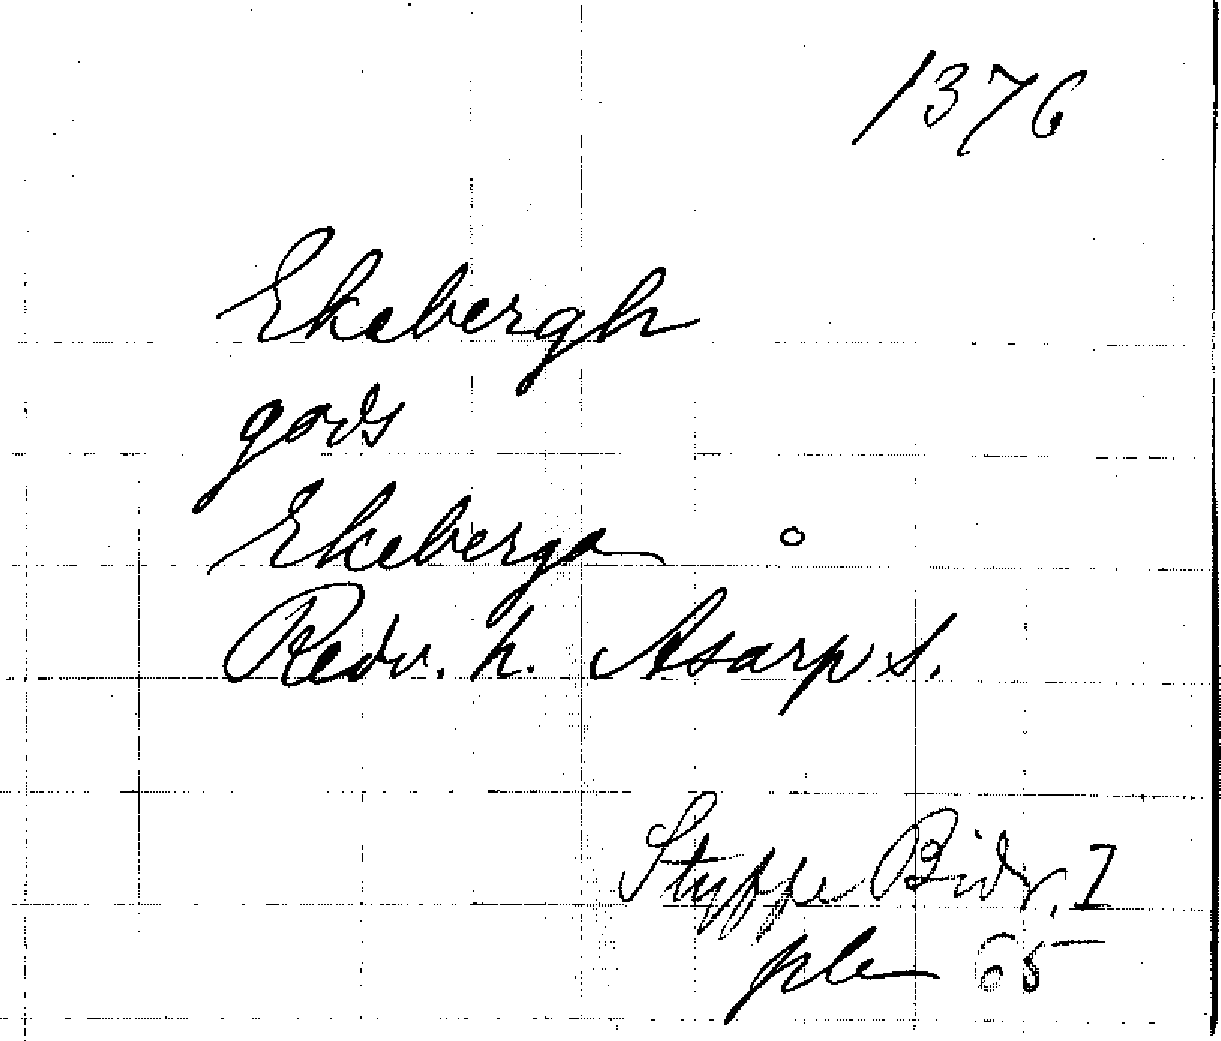 1376
Ekebergh
gods
Ekeberga
Redv. h. Asarp s.
Styffe Bidr. I
65